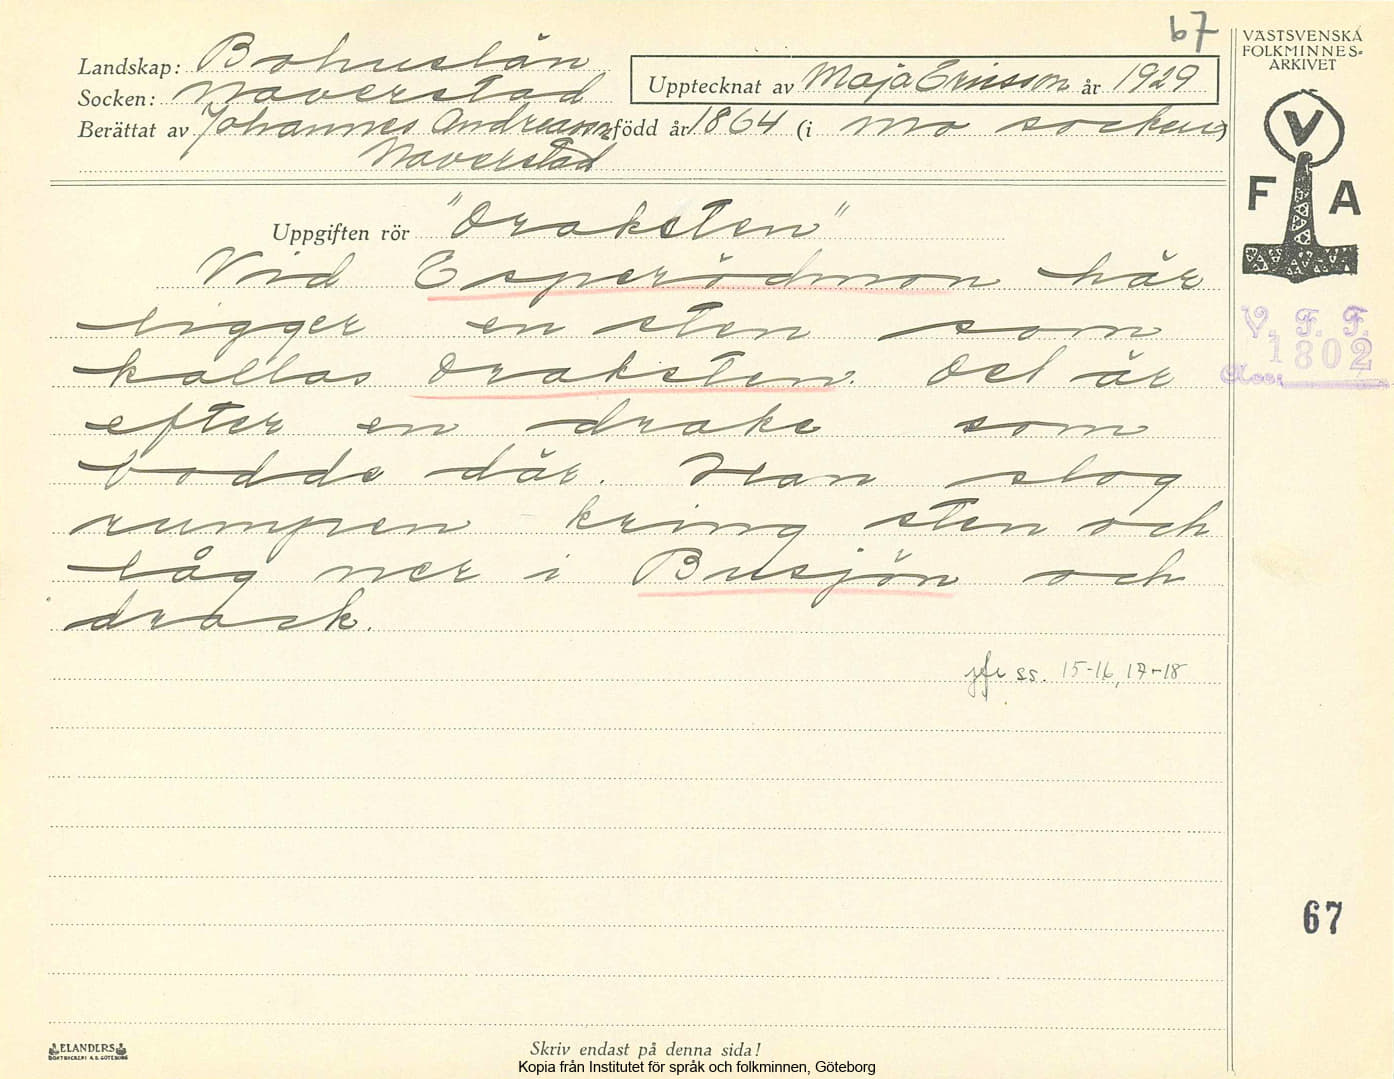 67
VÄSTSVENSKA
FOLKMINNES-
ARKIVET
Landskap: Bohuslän
Socken: Naverstad
Upptecknat av Maja Ericsson år 1929
Berättat av Johannes Andreasson född år 1864 (i Mo socken)
Naverstad
V
F A
Uppgiften rör "Draksten"
Vid Esperödmon här
ligger en sten som
kallas Draksten. Det är
efter en drake som
bodde där. Han slog
rumpen kring sten och
låg ner i Busjön och
drack.
V. F. F.
1802
Acc.
jfr ss. 15-16, 17-18
67
ELANDERS
BOKTRYCKERI A.B. GÖTEBORG
Skriv endast på denna sida!
Kopia från Institutet för språk och folkminnen, Göteborg